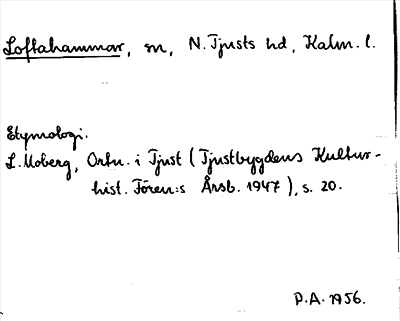 Loftahammar, sn, N. Tjusts hd, Kalm. l.
Etymologi.
L. Moberg, Ortn. i Tjust (Tjustbygdens Kultur-
hist. Fören:s Årsb. 1947), s. 20.
P.A. 1956.